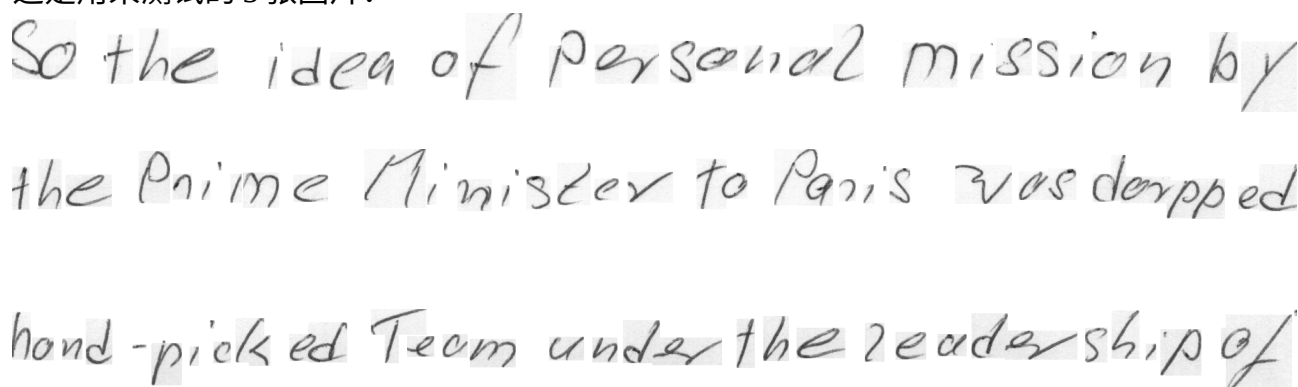 So the idea of personal mission by
the Prime Minister to Paris was dorpped
hand-picked Team under the leadership of